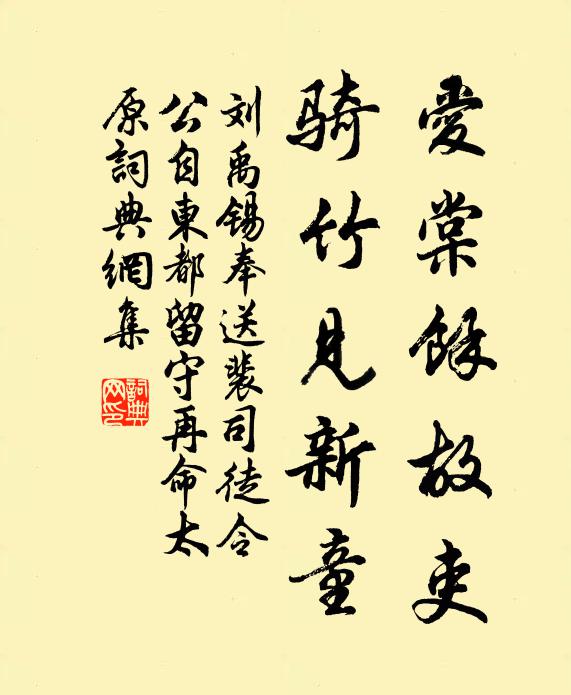 愛棠餘故吏
騎竹見新童
刘禹锡奉送裴司徒令
公自東都留守再命太
原詞典網集
詞典
网印